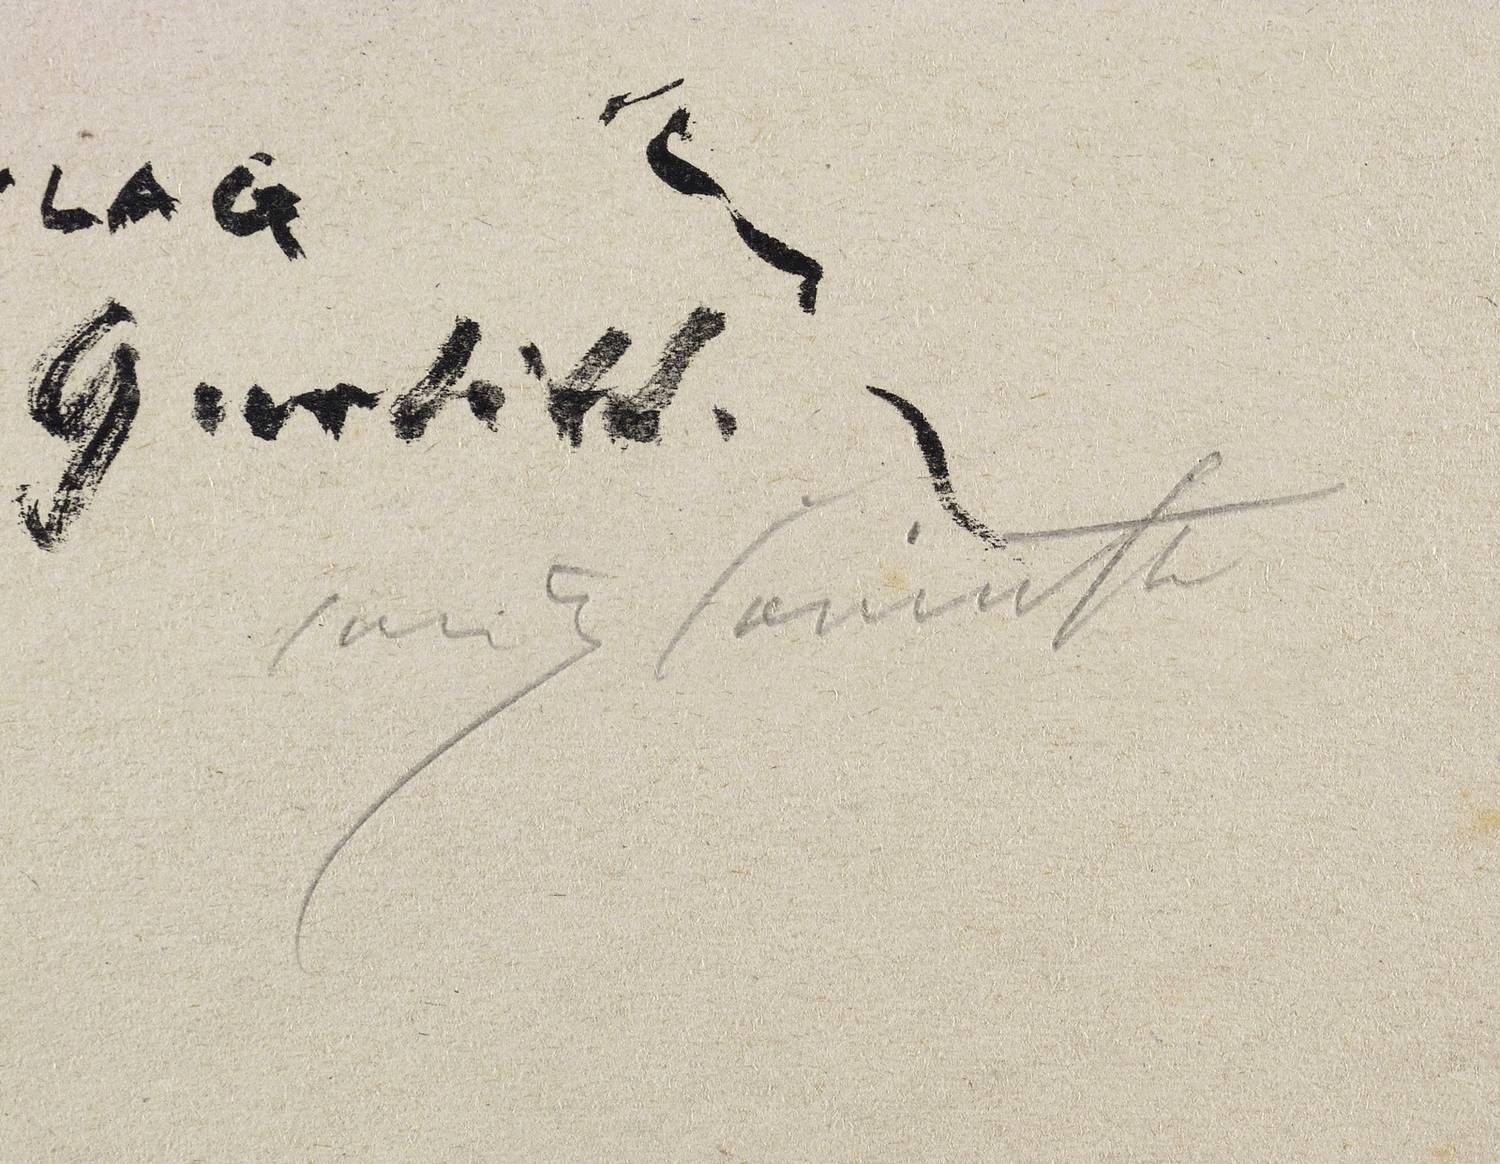 LAG
Gurlitt.
Lovis Corinth